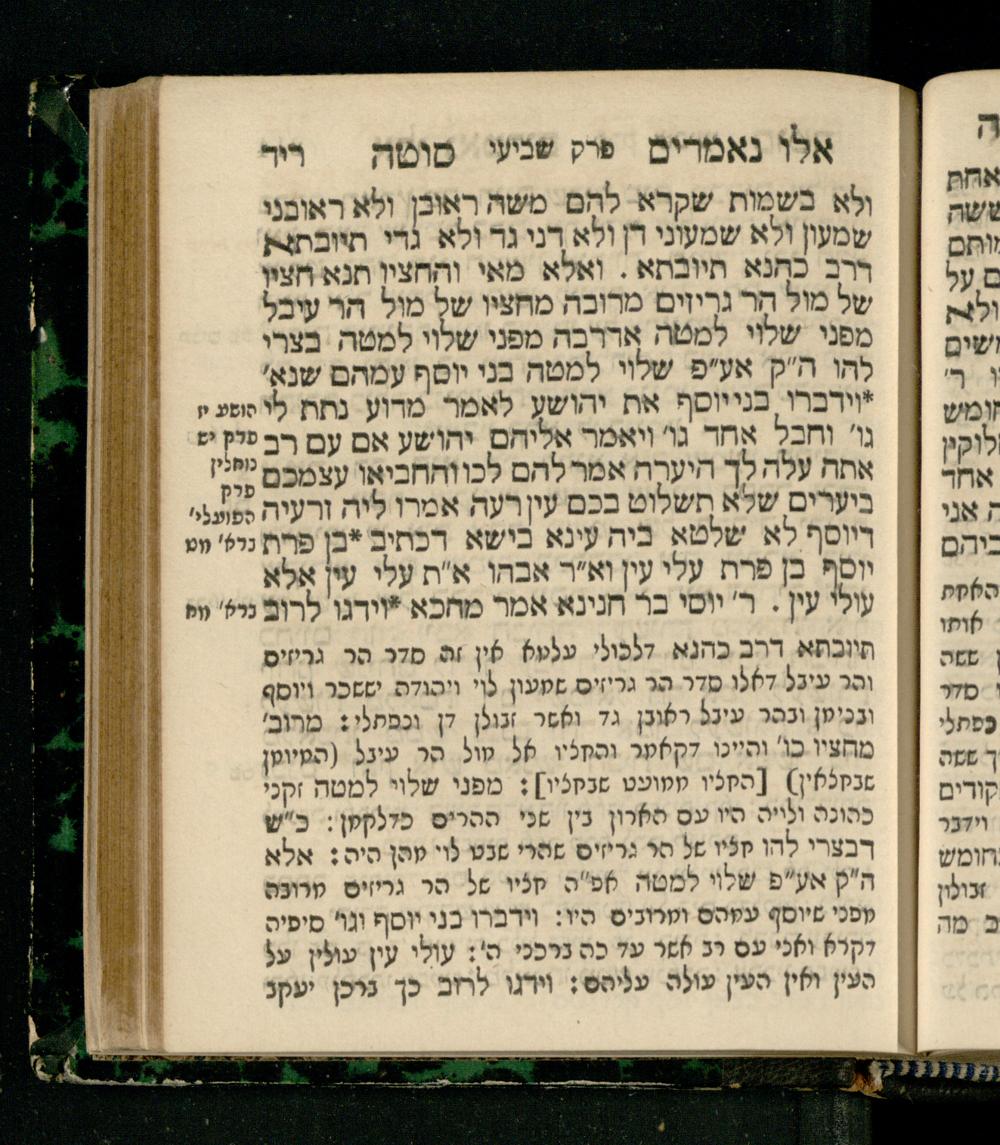 אלו נאמרים פרק שביעי סוטה ריד
ולא בשמות שקרא להם משה ראובן ולא ראובני
שמעון ולא שמעוני דן ולא דני גד ולא גדי תיובתא
דרב כהנא תיובתא . ואלא מאי והחציו תנא חציו
של מול הר גריזים מרובה מחציו של מול הר עיבל
מפני שלוי למטה אדרבה מפני שלוי למטה בצרי
להו ה״ק אע״פ שלוי למטה בני יוסף עמהם שנא׳
*וידברו בני יוסף את יהושע לאמר מדוע נתת לי
גו׳ וחבל אחד גו׳ ויאמר אליהם יהושע אם עם רב
אתה עלה לך היערה אמר להם לכו והחביאו עצמכם
ביערים שלא תשלוט בכם עין רעה אמרו ליה זרעיה
דיוסף לא שלטא ביה עינא בישא דכתיב *בן פרת
יוסף בן פרת עלי עין וא״ר אבהו א״ת עלי עין אלא
עולי עין . ר׳ יוסי בר חנינא אמר מהכא *וידגו לרוב
הושע יז
פרק יש
נוחלין
פרק
הפועלי׳
ברא׳ מט
ברא׳ מח
תיובתא דרב כהנא דלכולי עלמא אין זה סדר הר גריזים
והר עיבל דאלו סדר הר גריזים שמעון לוי ויהודה יששכר ויוסף
ובנימן ובהר עיבל ראובן גד ואשר זבולן דן ונפתלי : מרוב׳
מחציו כו׳ והיינו דקאמר והחציו אל מול הר עיבל (המיומן
שבחצאין) [החציו ממועט שבחציו] : מפני שלוי למטה זקני
כהונה ולוייה היו עם הארון בין שני ההרים כדלקמן : כ״ש
דבצרי להו חציו של הר גריזים שהרי שבט לוי מהן היה : אלא
ה״ק אע״פ שלוי למטה אפ״ה חציו של הר גריזים מרובה
מפני שיוסף עמהם ומרובים היו : וידברו בני יוסף וגו׳ סיפיה
דקרא ואני עם רב אשר עד כה ברכני ה׳ : עולי עין עולין על
העין ואין העין עולה עליהם : וידגו לרוב כך ברכן יעקב